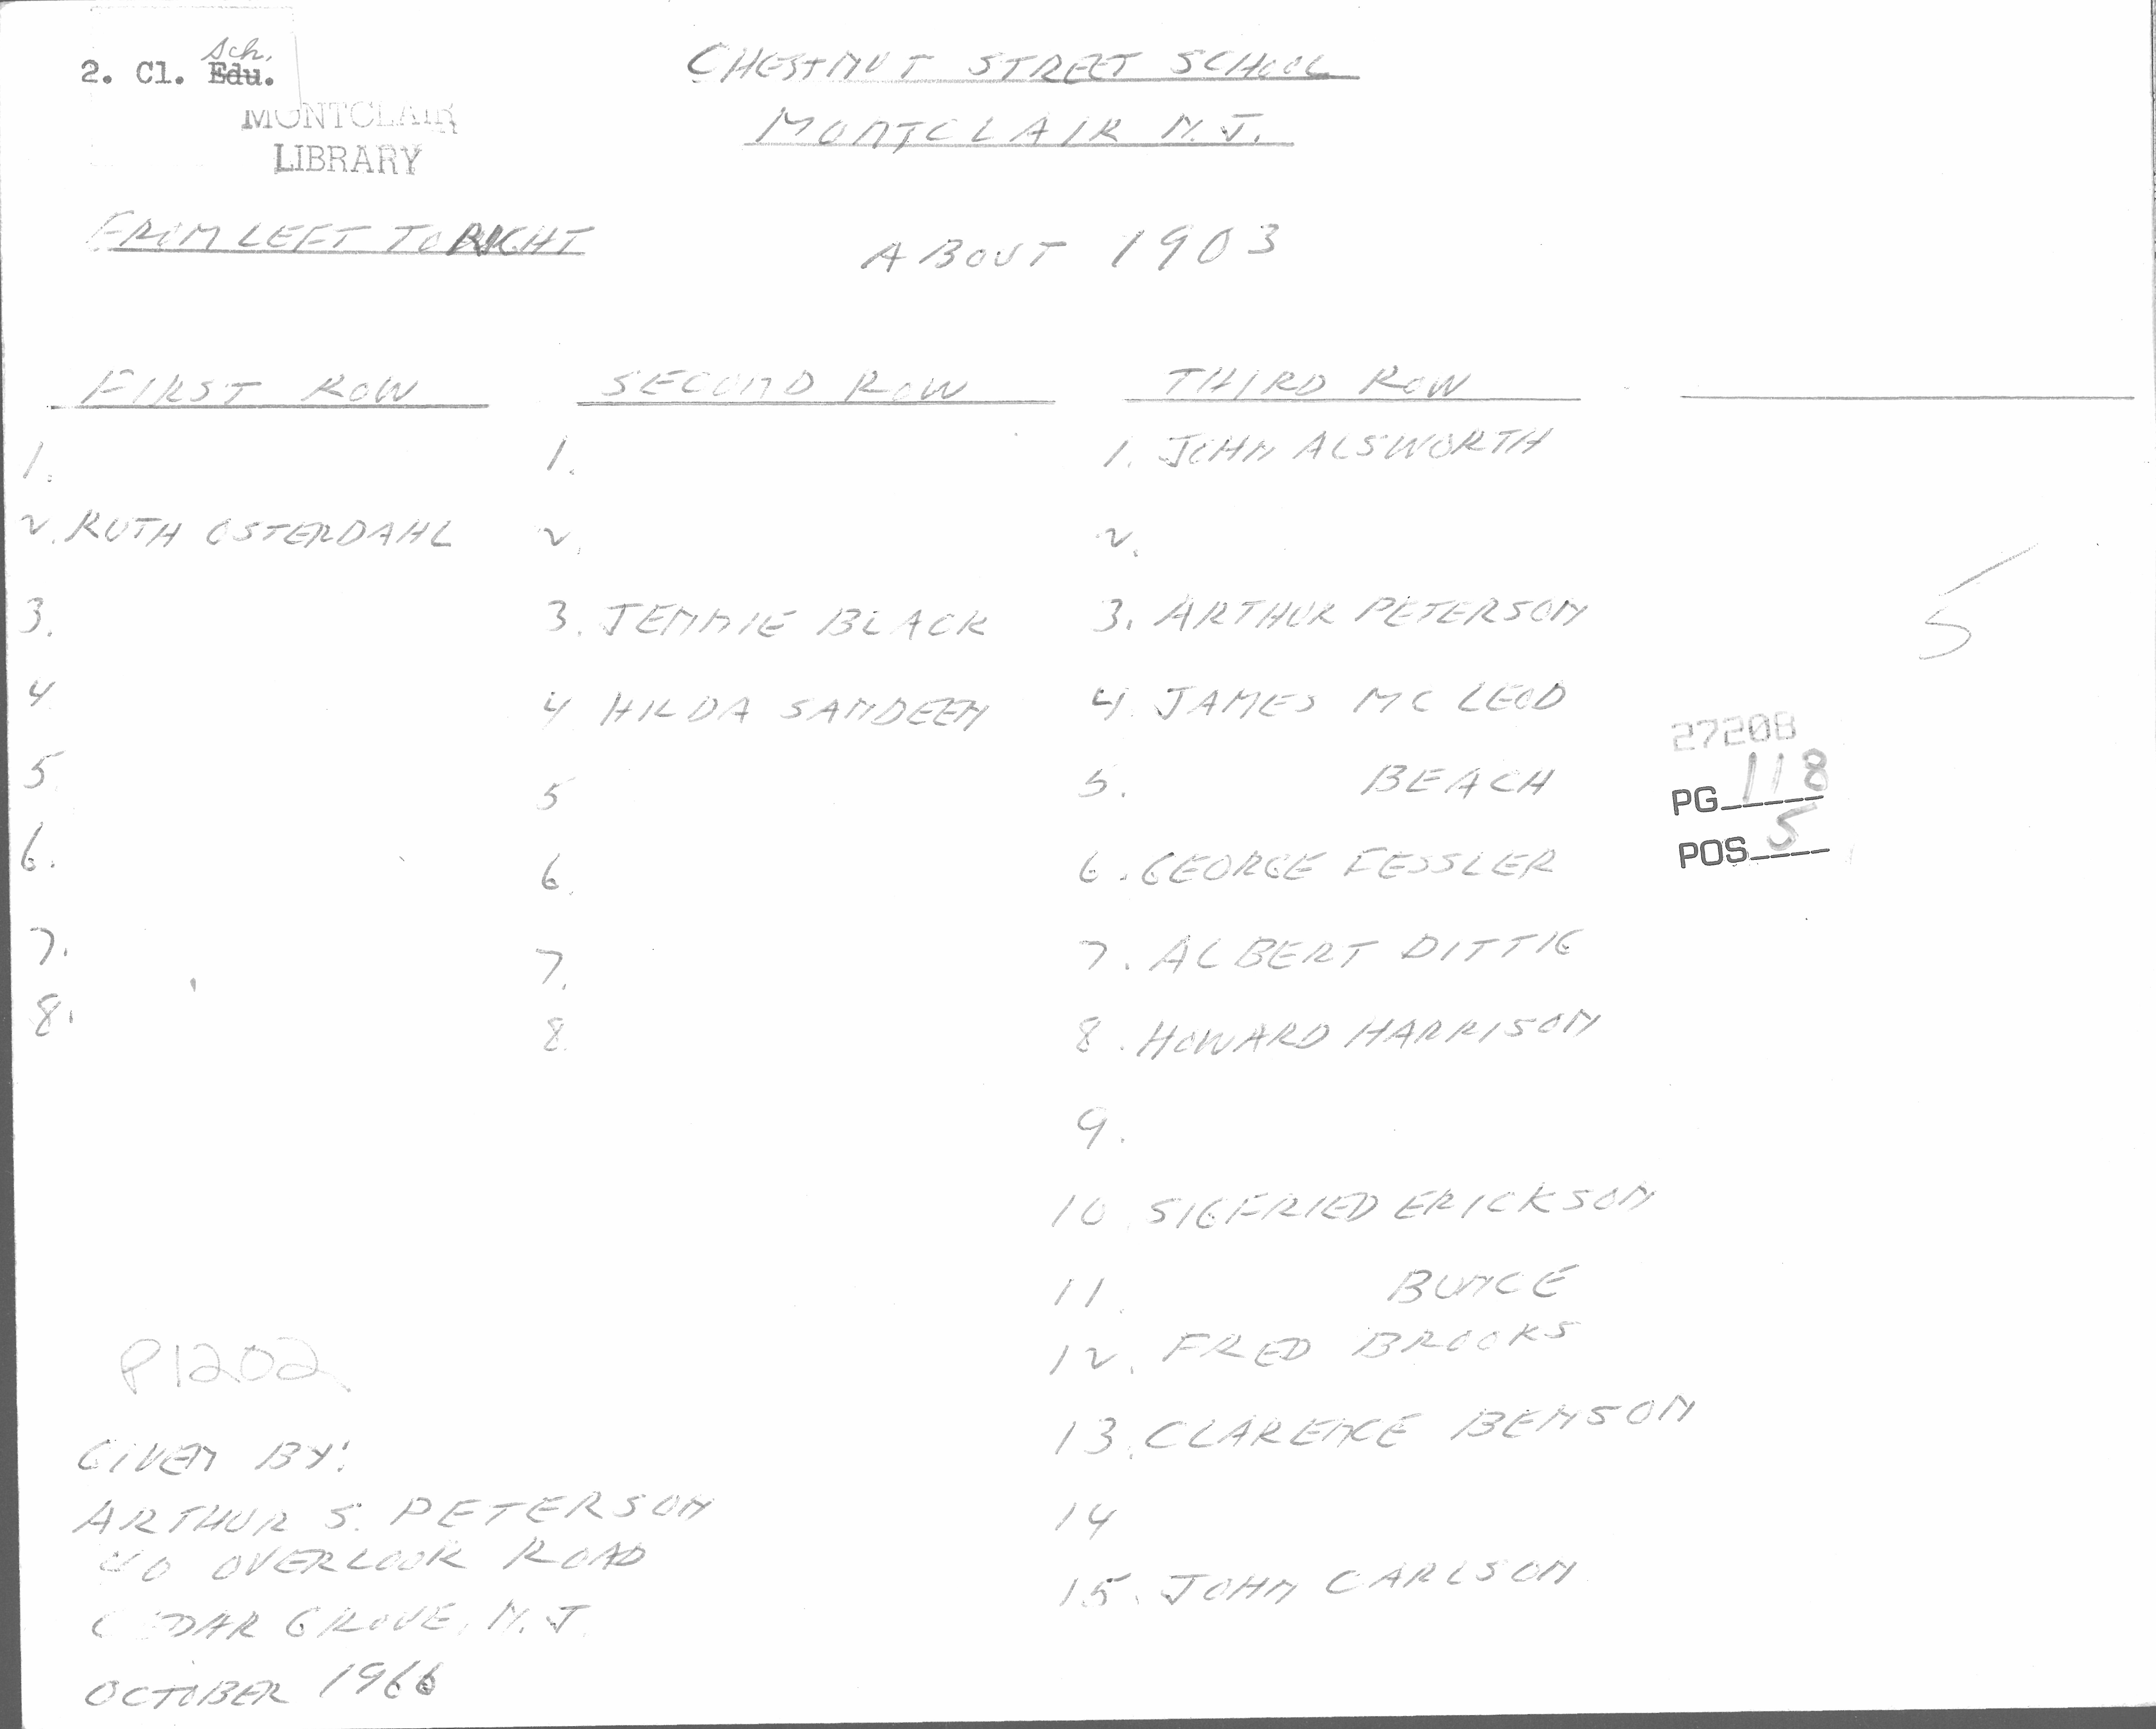 Sch.
2. Cl. Edu.
MONTCLAIR
LIBRARY
CHESTNUT STREET SCHOOL
MONTCLAIR N.J.
FROM LEFT TO RIGHT
ABOUT 1903
FIRST ROW
1.
2. RUTH OSTERDAHL
3.
4
5
6.
7.
8.
SECOND ROW
1.
2.
3. JENNIE BLACK
4 HILDA SANDEEN
5
6.
7.
8.
THIRD ROW
1. JOHN ALSWORTH
2.
3. ARTHUR PETERSON
4. JAMES MC LEOD
5. BEACH
6. GEORGE FESSLER
7. ALBERT DITTIG
8. HOWARD HARRISON
9.
10. SIGFRIED ERICKSON
11. BUNCE
12. FRED BROOKS
13. CLARENCE BENSON
14
15. JOHN CARLSON
5
27208
PG 118
POS 5
P1202
GIVEN BY:
ARTHUR S. PETERSON
40 OVERLOOK ROAD
CEDAR GROVE, N.J.
OCTOBER 1966